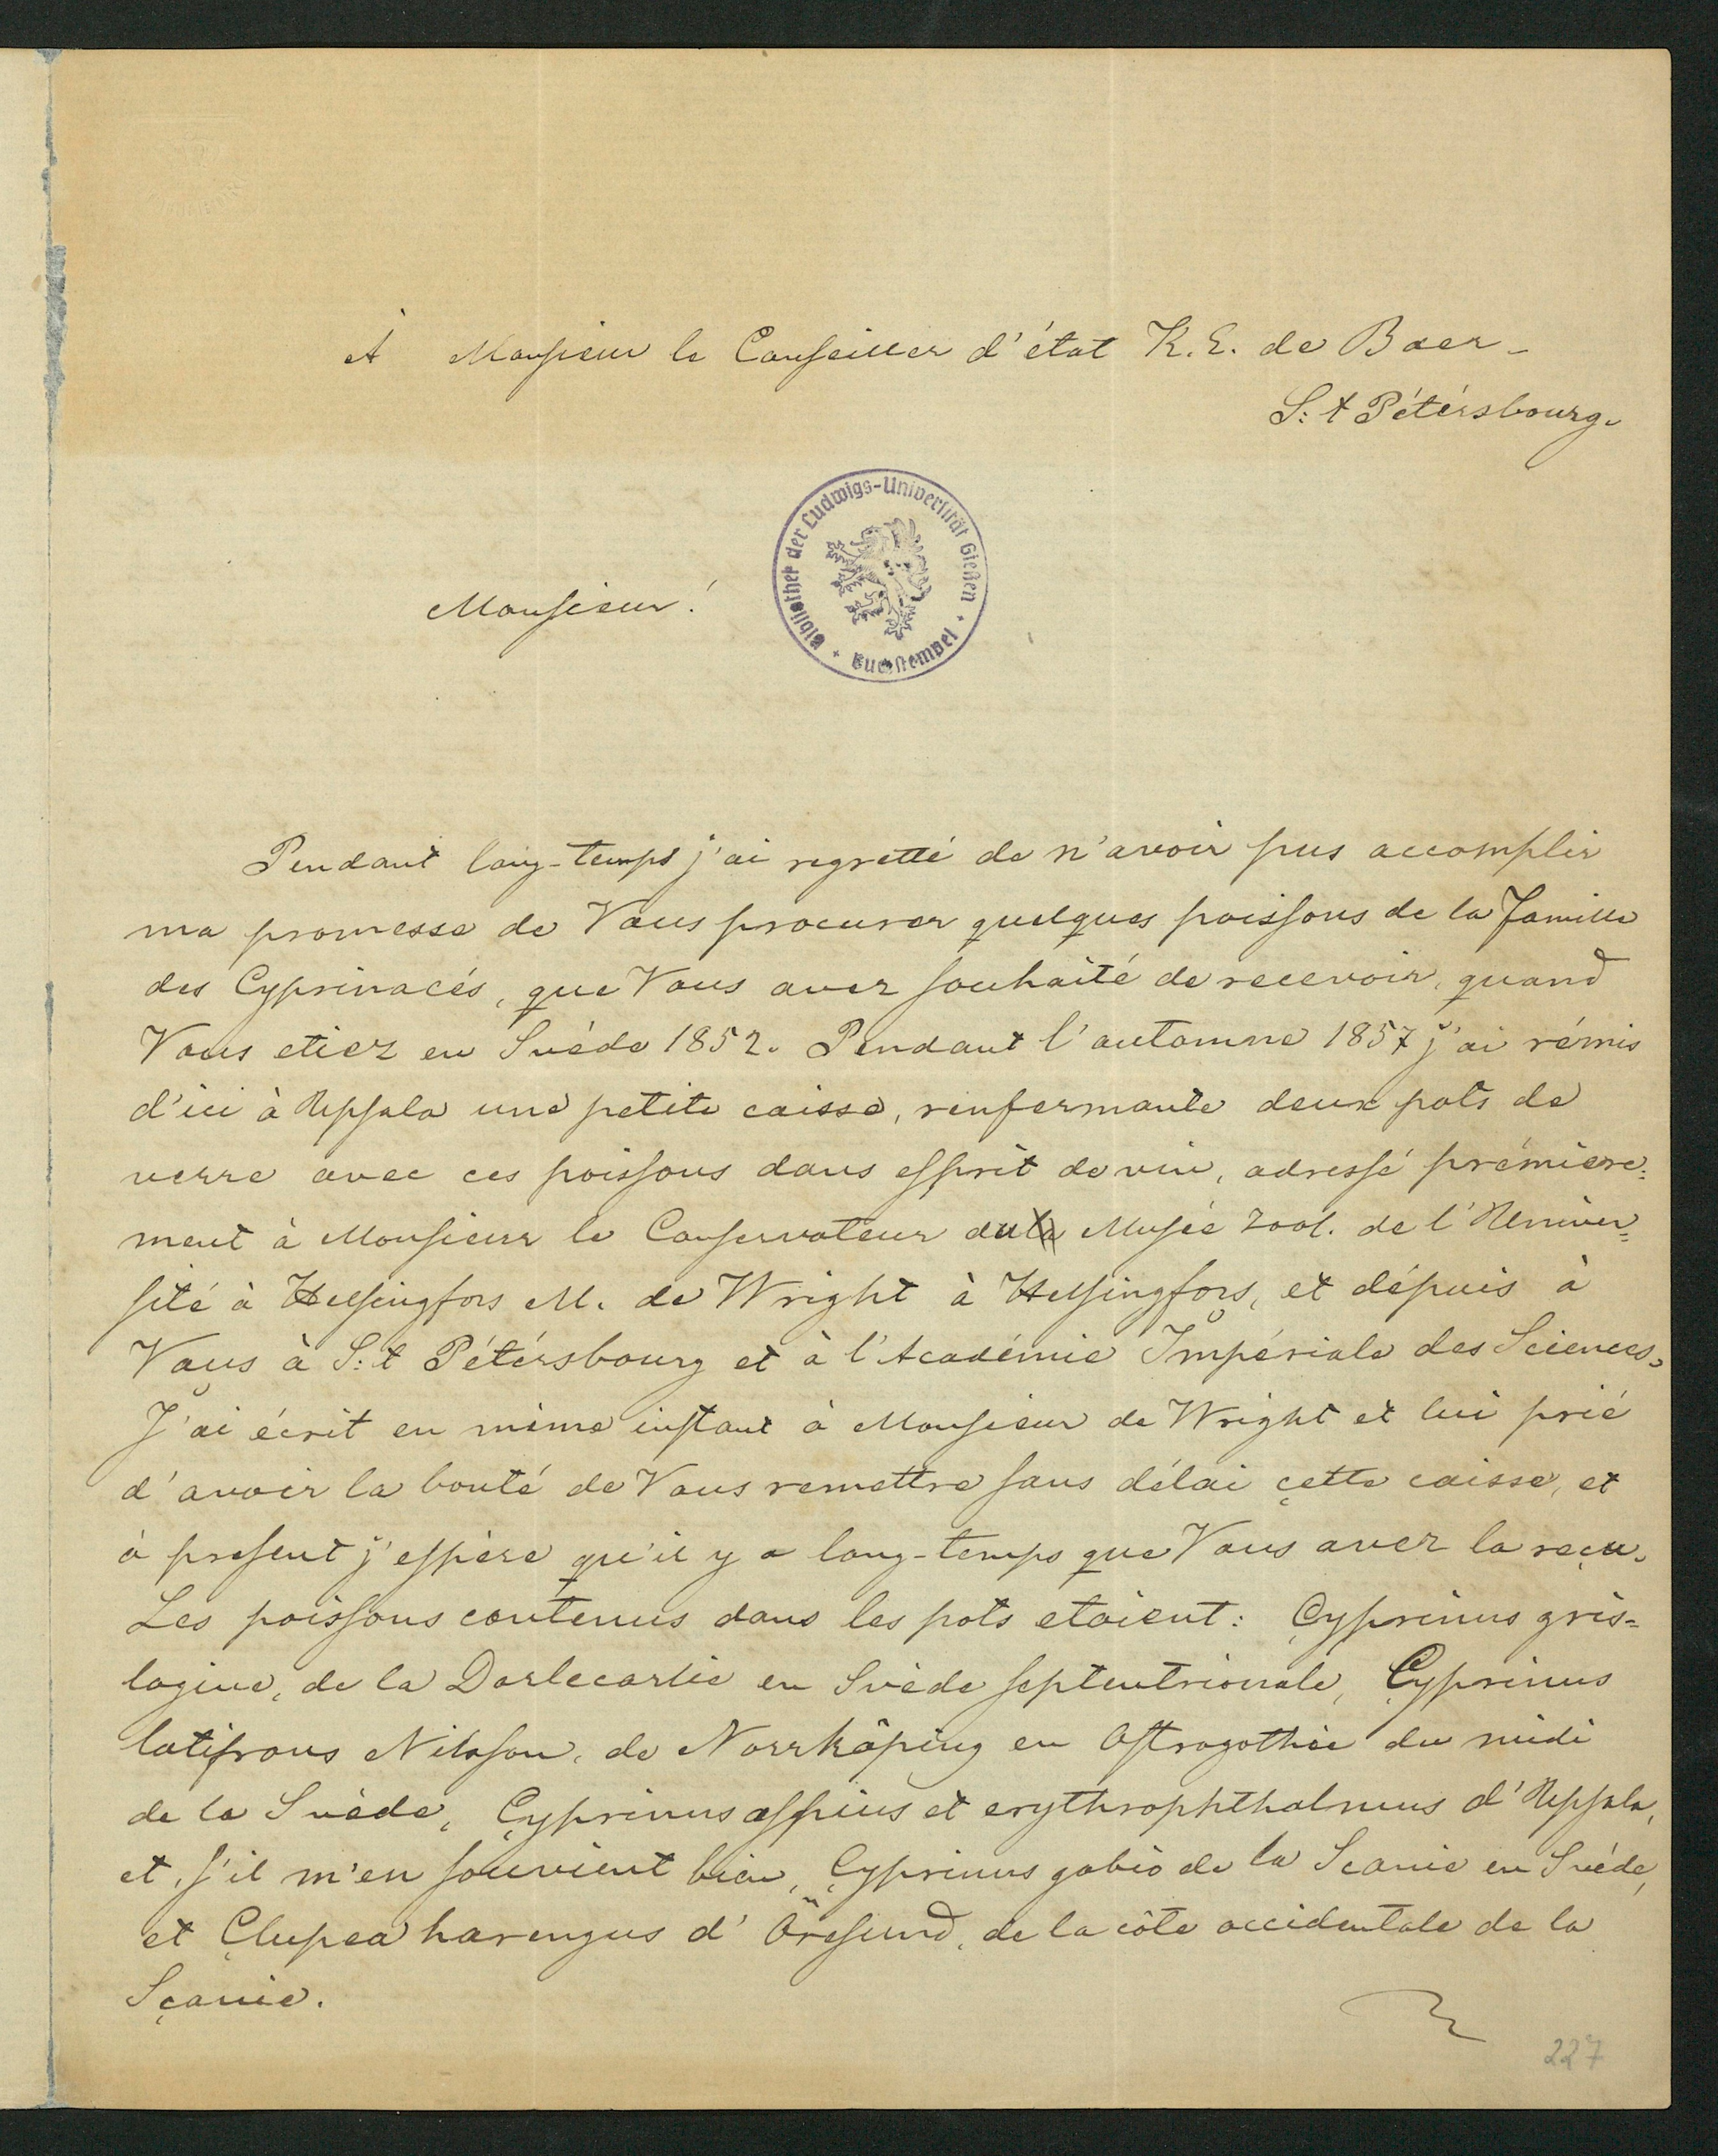 À Monsieur le Conseiller d'état K. E. de Baer.
S:t Pétérsbourg.
Bibliothek der Ludwigs-Universität Gießen
Buchstempel
Monsieur!
Pendant long-temps j'ai regretté de n'avoir pus accomplir
ma promesse de Vous procurer quelques poissons de la famille
des Cyprinacés, que Vous avez souhaité de recevoir, quand
Vous etiez en Suéde 1852. Pendant l'automne 1857 j'ai rémis
d'ici à Upsala une petite caisse, renfermante deux pots de
verre avec ces poissons dans esprit de vin, adressé prémiere=
ment à Monsieur le Conservateur du Musée Zool. de l'Univer=
sité à Helsingfors M. de Wright à Helsingfors, et dépuis à
Vous à S:t Pétérsbourg et à l'Académie Impériale des Sciences.
J'ai écrit en même instant à Monsieur de Wright et lui prié
d'avoir la bonté de Vous remettre sans délai cette caisse, et
à present j'espère qu'il y a long-temps que Vous avez la reçu.
Les poissons contenus dans les pots etoient: Cyprinus gris=
lagine, de la Darlecarlie en Suède septentrionale, Cyprinus
latifrons Nilsson, de Norrköping en Ostrogothie du midi
de la Suède, Cyprinus aspius et erythrophthalmus d'Upsala,
et, s'il m'en souvient bien, Cyprinus gobio de la Scanie en Suéde,
et Clupea harengus d'Öresund, de la côte occidentale de la
Scanie.
227